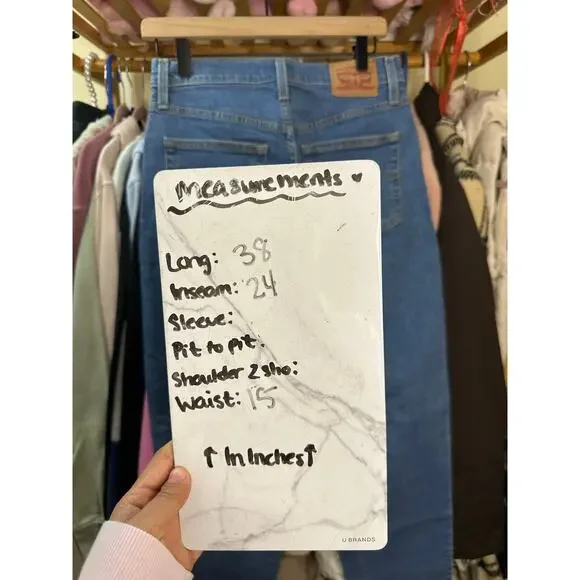 Measurements ♥
Long: 38
Inseam: 24
Sleeve:
Pit to pit:
Shoulder 2 sho:
Waist: 15
↑ In Inches ↑
U BRANDS